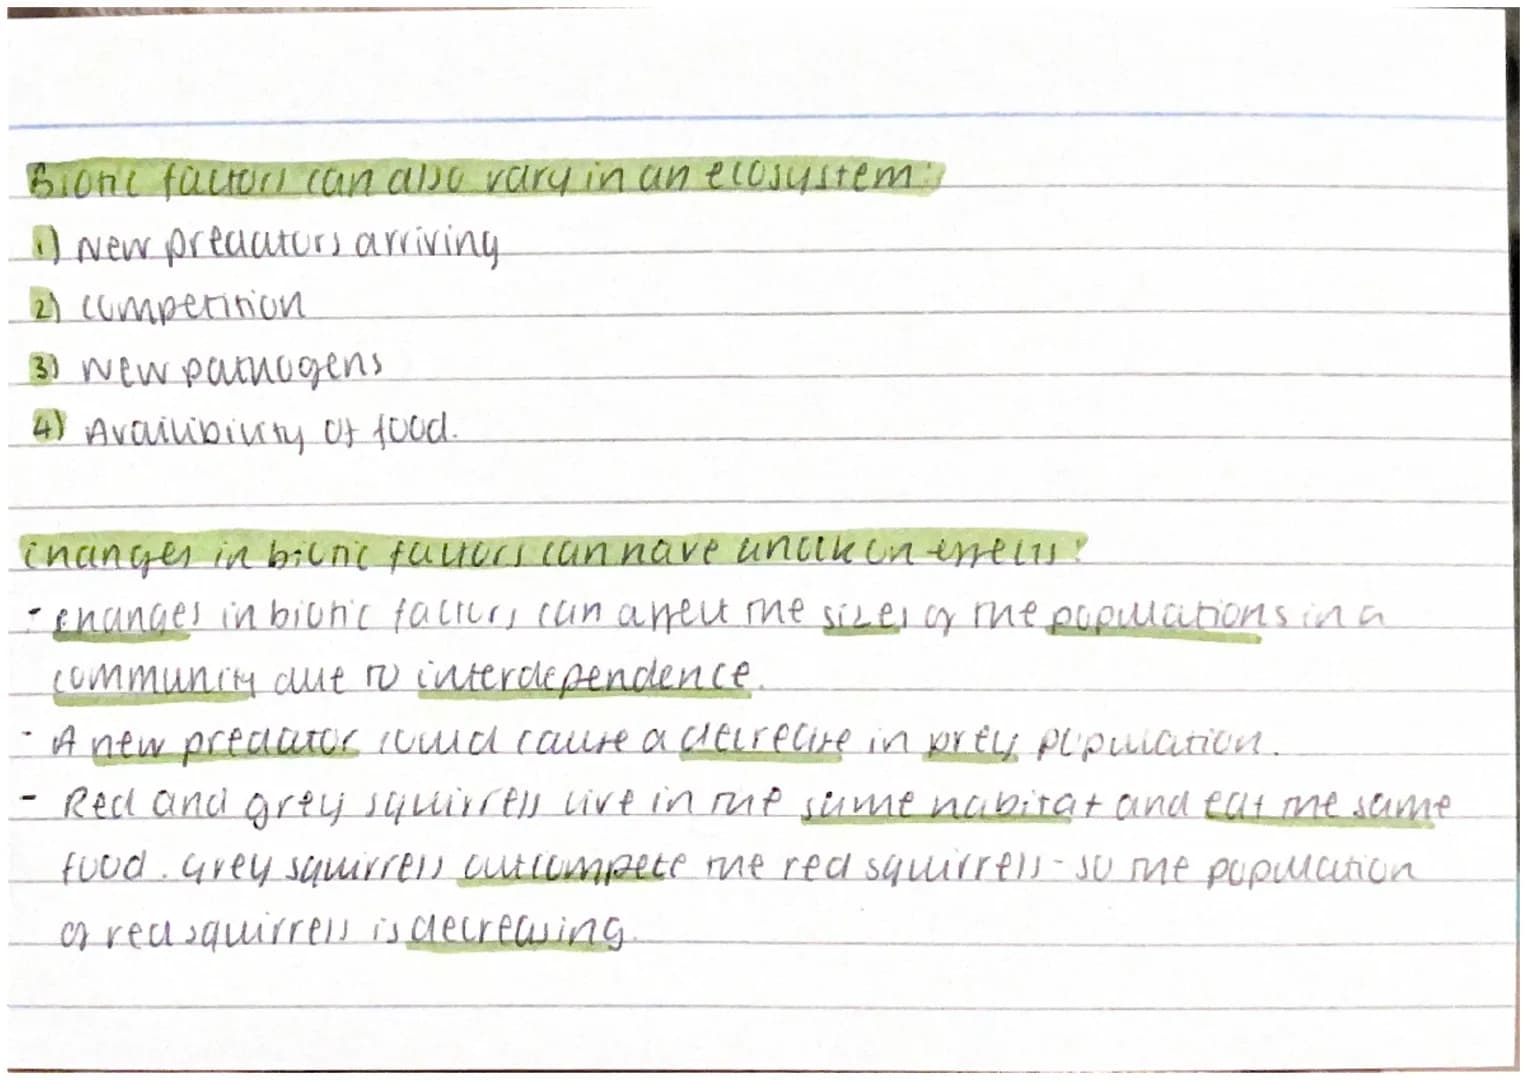 Biotic factors can also vary in an ecosystem:
1) New predators arriving
2) competition
3) New pathogens
4) Availibility of food.
changes in biotic factors can have a knock on effects:
- changes in biotic factors can affect the sizes of the populations in a
community due to interdependence.
- A new predator could cause a decrease in prey population.
- Red and grey squirrels live in the same habitat and eat the same
food. Grey squirrels outcompete the red squirrels - so the population
of red squirrels is decreasing.